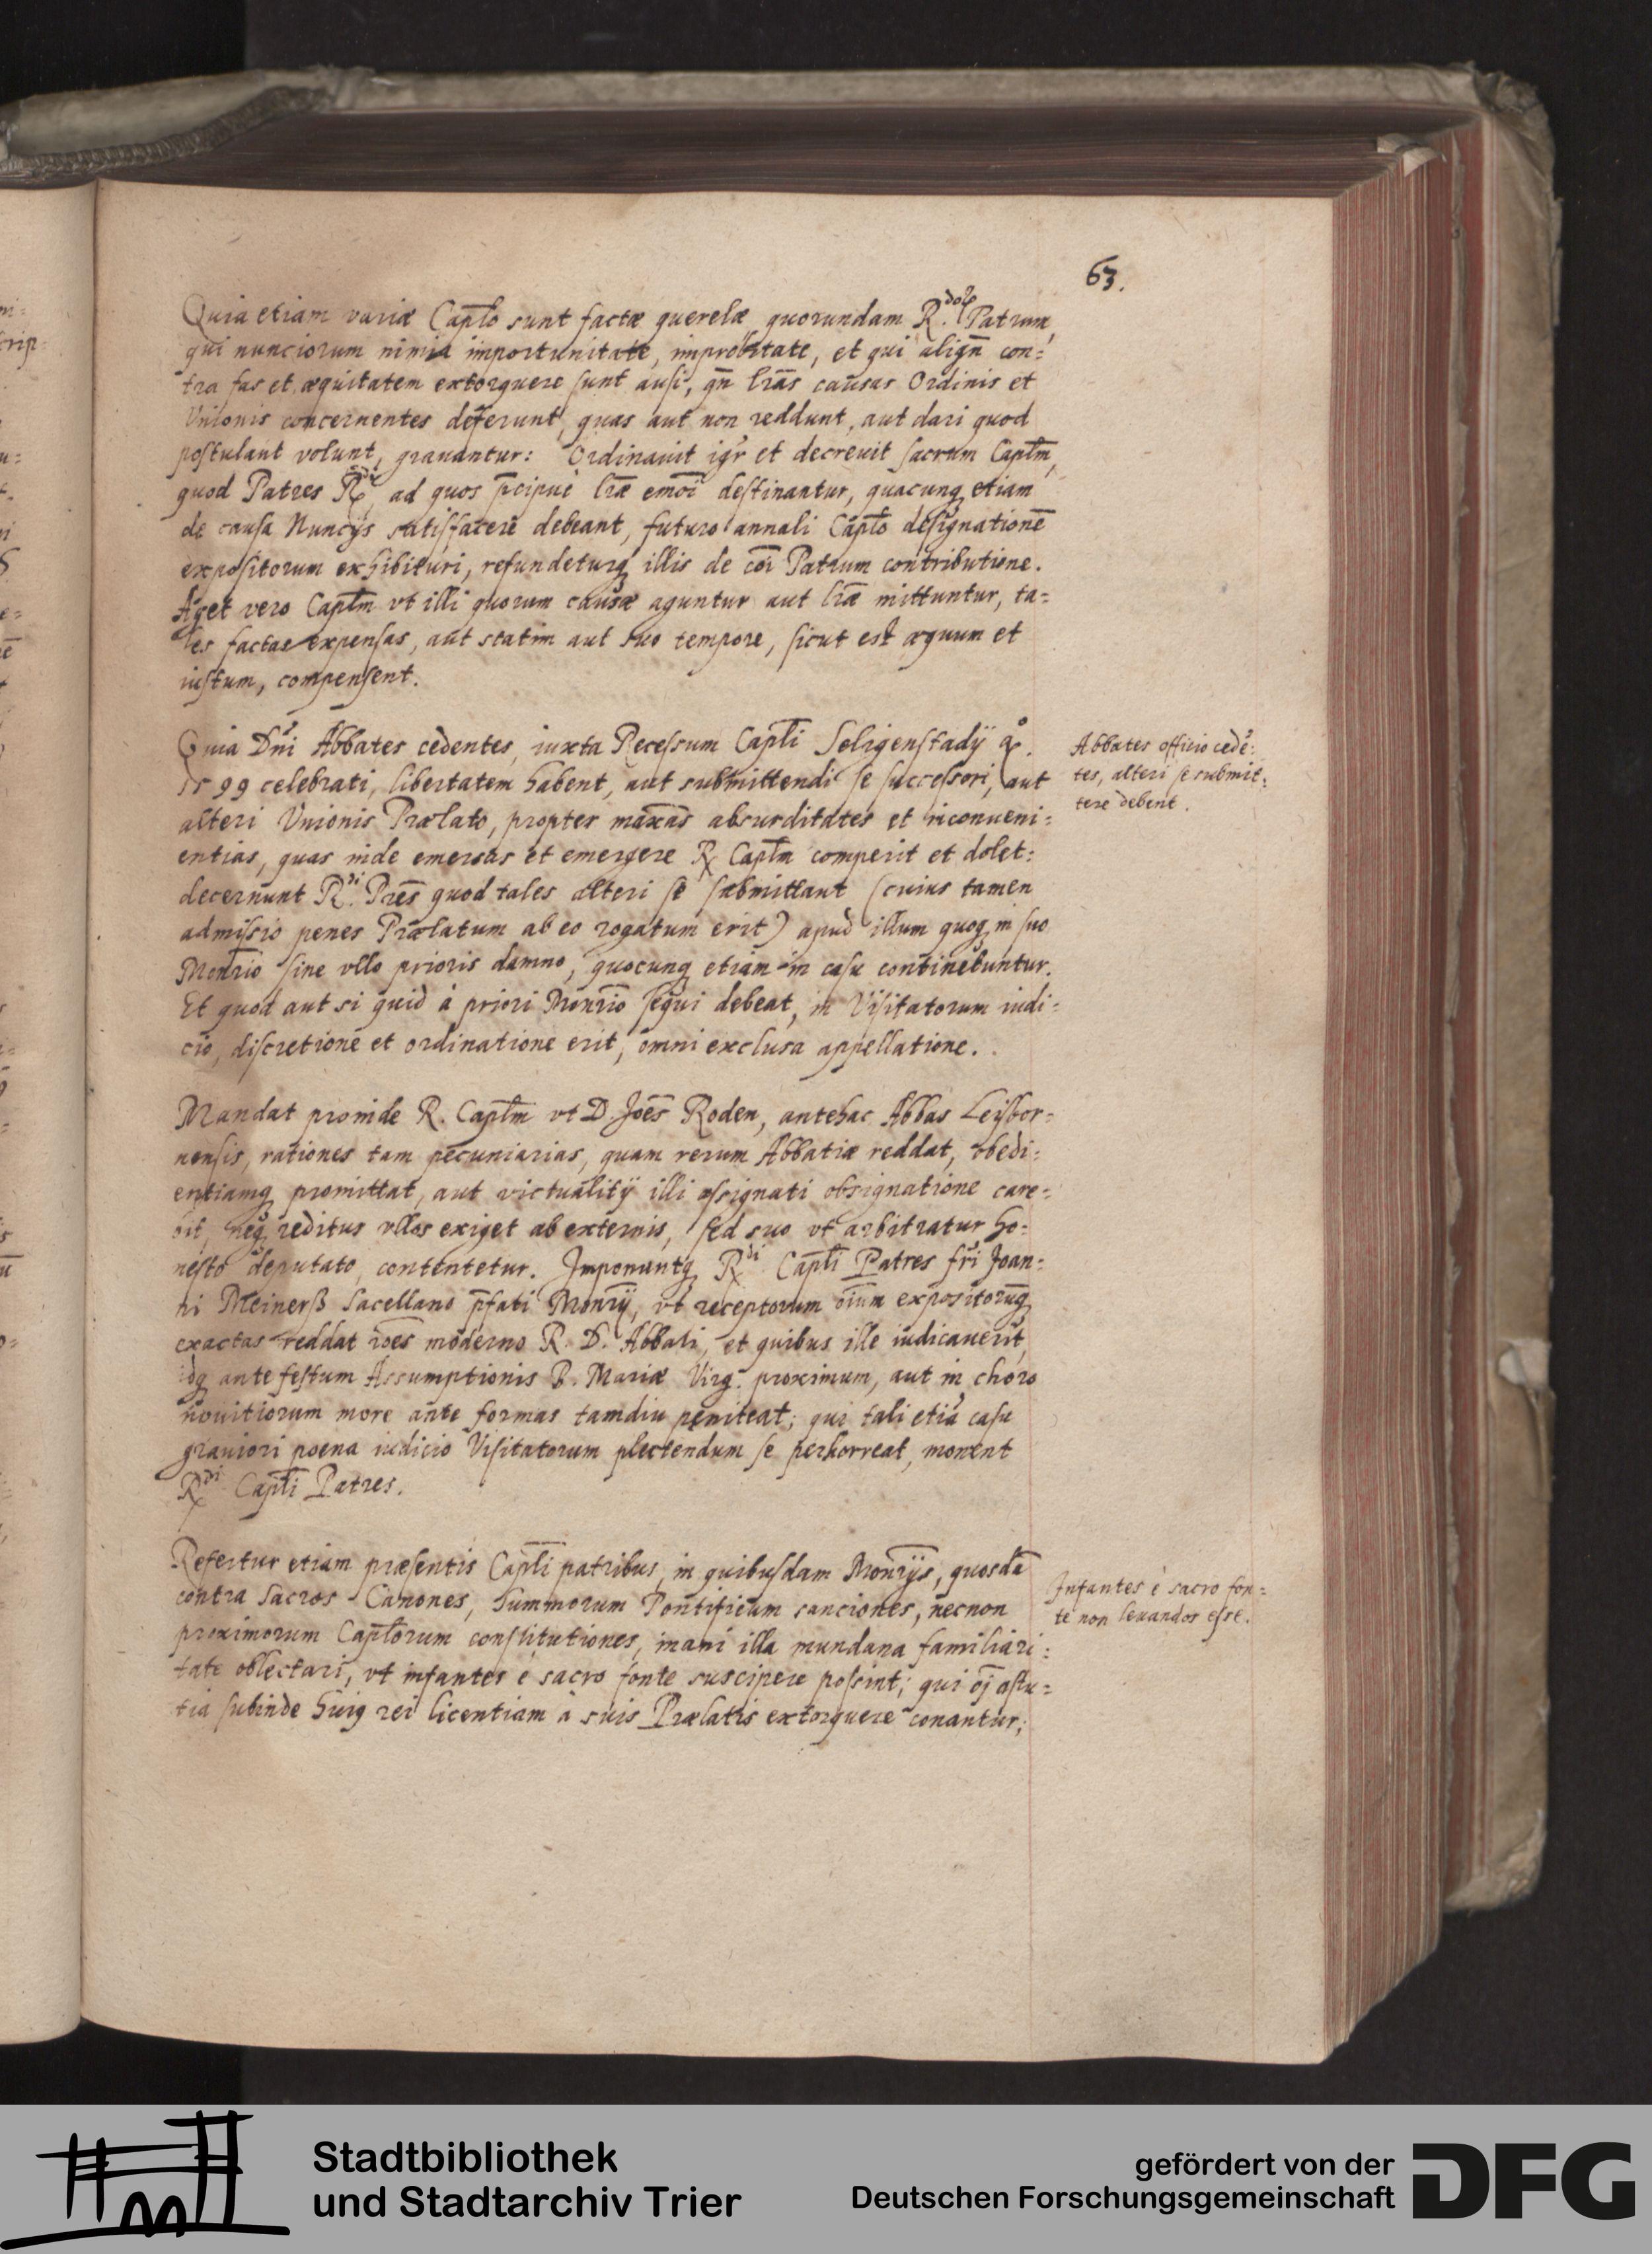 63.
Quia etiam variæ Capl̃o sunt factæ querelæ quorundam R.^dorum Patrum,
qui nunciorum nimia importunitate, improbitate, et qui aliqñ con=
tra fas et æquitatem extorquere sunt ausi, qñ lr̃as causas Ordinis et
Vnionis concernentes deferunt, quas aut non reddunt, aut dari quod
postulant volunt, grauantur: Ordinauit igr̃ et decreuit sacrum Capl̃m,
quod Patres R^di, ad quos p̃cipuè lr̃æ emõi destinantur, quacunq etiam
de causa Nuncijs satisfacere debeant, futuro annali Capl̃o designationē
expositorum exhibituri, refundeturq illis de cõi Patrum contributione.
Aget vero Capl̃m vt illi quorum causæ aguntur aut lr̃æ mittuntur, ta=
les factas expensas, aut statim aut suo tempore, sicut est æquum et
iustum, compensent.
Quia Dñi Abbates cedentes, iuxta Recessum Capl̃i Seligenstadij a°.
1599 celebrati, libertatem habent, aut submittendi se successori, aut
alteri Vnionis Prælato, propter maxãs absurditates et inconueni=
entias, quas inde emersas et emergere R Capl̃m comperit et dolet:
decernunt R.^di Pr̃es quod tales alteri se submittant (cuius tamen
admissio penes Prælatum ab eo rogatum erit) apud illum quoq in suo
Monr̃io sine vllo prioris damno, quocunq etiam in casu continebuntur.
Et quod aut si quid à priori Monr̃io sequi debeat, in Visitatorum iudi=
cio, discretione et ordinatione erit, omni exclusa appellatione.
Abbates officio cedē=
tes, alteri se submit=
tere debent.
Mandat proinde R. Capl̃m vt D. Joẽs Roden, antehac Abbas Leisbor=
nensis, rationes tam pecuniarias, quam rerum Abbatiæ reddat, obedi=
entiamq promittat, aut victualitij illi assignati obsignatione care=
bit, neq reditus vllos exiget ab externis, sed suo vt arbitratur ho=
nesto deputato contentetur. Imponuntq R^di Capl̃i Patres fr̃i Joan=
ni Meinerß Sacellano p̃fati Monr̃ij, vt receptorum oĩum expositorumq
exactas reddat rões moderno R. D. Abbati, et quibus ille iudicauerit,
idq ante festum Assumptionis B. Mariæ Virg. proximum, aut in choro
nouitiorum more ante formas tamdiu pęniteat; qui tali etiā casu
grauiori poena iudicio Visitatorum plectendum se perhorreat, monent
R^di Capl̃i Patres.
Refertur etiam præsentis Capl̃i patribus, in quibusdam Monr̃ijs, quosdā
contra Sacros Canones, Summorum Pontificum sanciones, necnon
proximorum Capl̃orum constitutiones, inani illa mundana familiari=
tate oblectari, vt infantes è sacro fonte suscipere possint; qui oĩ astu=
tia subinde huiq rei licentiam à suis Prælatis extorquere conantur;
Infantes è sacro fon=
te non leuandos esse.
Stadtbibliothek
und Stadtarchiv Trier
gefördert von der
Deutschen Forschungsgemeinschaft
DFG